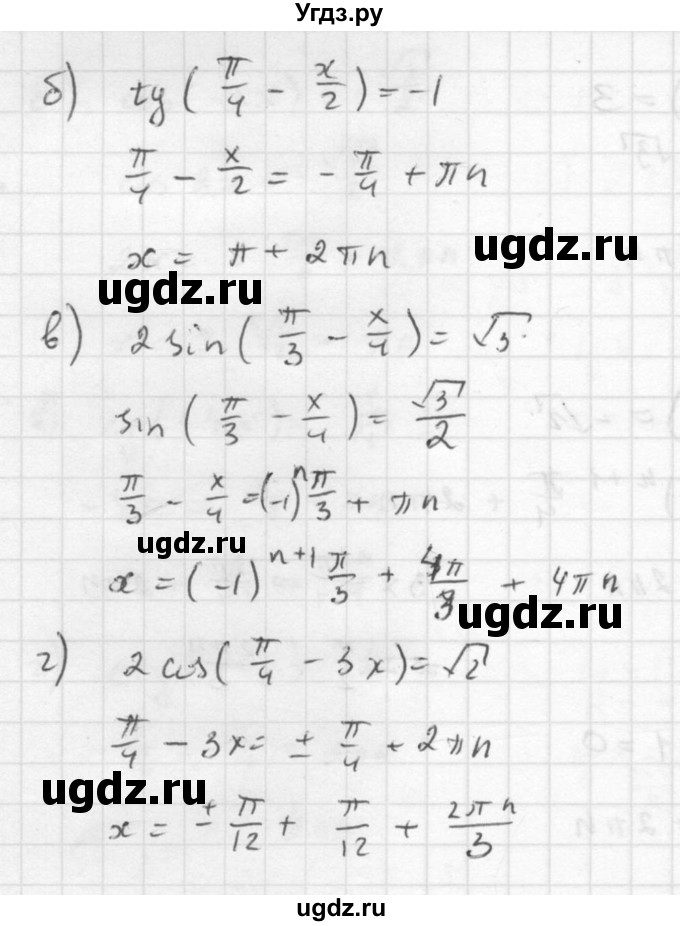 Угдз.ру
б) tg(π/4 - x/2) = -1
π/4 - x/2 = -π/4 + πn
ugdz.ru
x = π + 2πn
ugdz.ru
в) 2 sin(π/3 - x/4) = √3
sin(π/3 - x/4) = √3/2
π/3 - x/4 = (-1)^n π/3 + πn
ugdz.ru
x = (-1)^(n+1) π/3 + 4π/3 + 4πn
ugdz.ru
г) 2 cos(π/4 - 3x) = √2
π/4 - 3x = ± π/4 + 2πn
ugdz.ru
x = ± π/12 + π/12 + 2πn/3
ugdz.ru
ugdz.ru